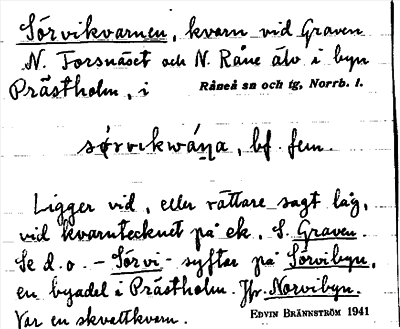 Sörvikvarnen, kvarn vid Graven
N. Forsnäset och N. Råne älv i byn
Prästholm, i Råneå sn och tg, Norrb. l.
bf. fem.
Ligger vid, eller rättare sagt låg,
vid kvarntecknet på ek. S. Graven.
Se d.o. - Sörvi- syftar på Sörvibyn,
en byadel i Prästholm. Jfr Norvibyn.
Var en skvattkvarn. EDVIN BRÄNNSTRÖM 1941